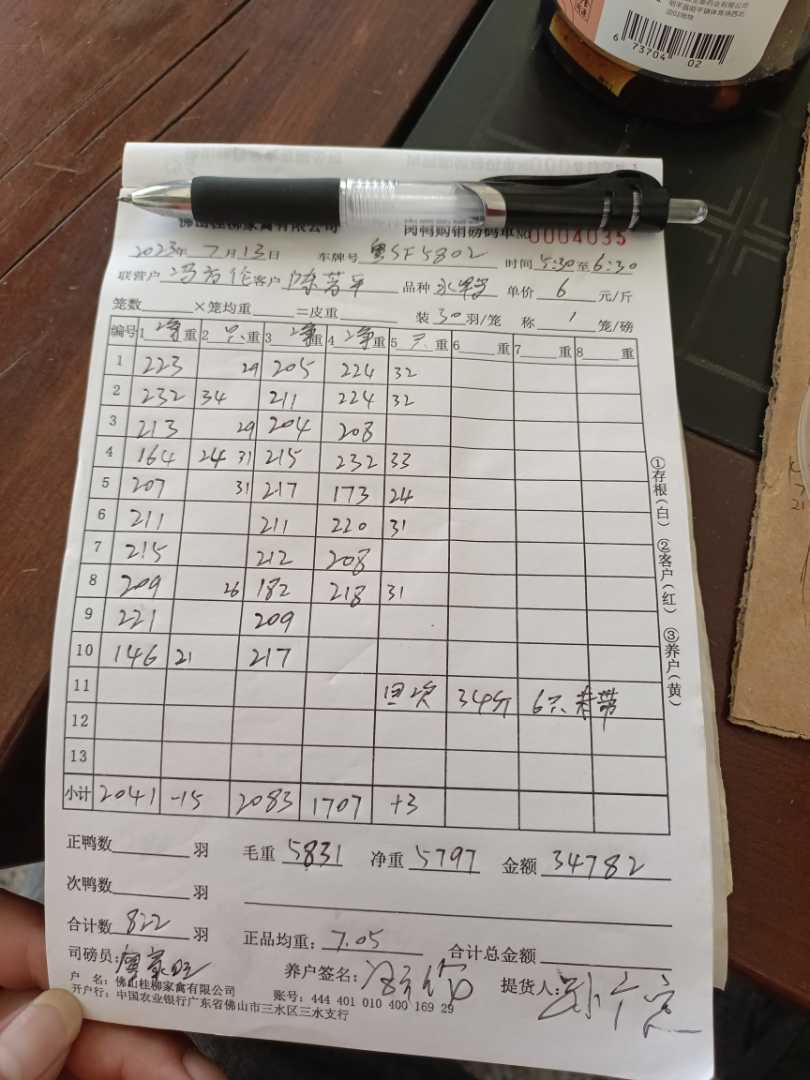 6 73704 02
佛山桂柳家禽有限公司 肉鸭购销磅码单 № 0004035
2023年 7月13日 车牌号 粤SF5802 时间 5:30至6:30
联营户 客户 品种 单价 6 元/斤
笼数 ×笼均重 =皮重 装 30 羽/笼 称 1 笼/磅
编号 1 净重 2 只重 3 净重 4 净重 5 只重 6 重 7 重 8 重
1 223 29 205 224 32
2 232 34 211 224 32
3 213 29 204 208
4 164 24 31 215 232 33
5 207 31 217 173 24
6 211 211 220 31
7 215 212 208
8 209 26 182 218 31
9 221 209
10 146 21 217
11 回次 34斤 6只未带
12
13
小计 2041 -15 2083 1707 +3
正鸭数 羽 毛重 5831 净重 5797 金额 34782
次鸭数 羽
合计数 822 羽 正品均重: 7.05 合计总金额
司磅员: 养户签名: 提货人:
户 名: 佛山桂柳家禽有限公司 账号: 444 401 010 400 169 29
开户行: 中国农业银行广东省佛山市三水区三水支行
①存根(白) ②客户(红) ③养户(黄)